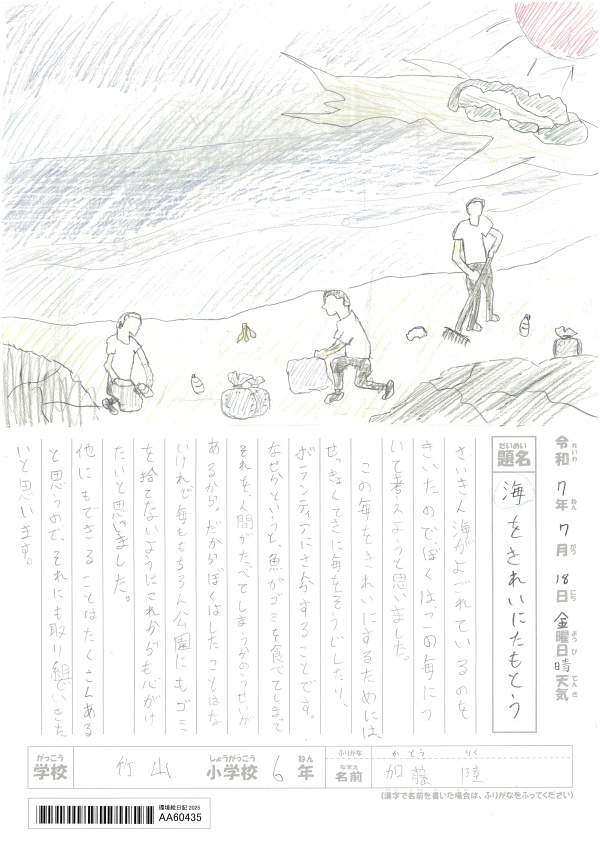 令和7年7月18日金曜日晴天気
れいわ ねん がつ にち ようび てんき
だいめい
題名
海をきれいにたもとう
さいきん海がよごれているのを
きいたので、ぼくは、この海につ
いて考えようと思いました。
この海をきれいにするためには、
せっきょくてきに海をそうじしたり、
ボランティアにさん加することです。
なぜかというと、魚がゴミを食べてしまって
それを、人間がたべてしまうかのうせいが
あるから。だからぼくはしたことはな
いけれど海ももちろん公園にもゴミ
を捨てないようにこれからも心がけ
たいと思いました。
他にもできることはたくさんある
と思うので、それにも取り組んでいきた
いと思います。
がっこう
学校
竹山
しょうがっこう
小学校
6
ねん
年
ふりがな
かとう りく
なまえ
名前
加藤 陸
(漢字で名前を書いた場合は、ふりがなをふってください)
環境絵日記 2025
AA60435